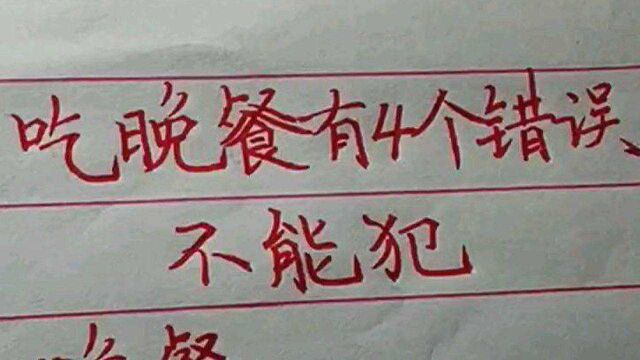 吃晚餐有4个错误、
不能犯
晚餐